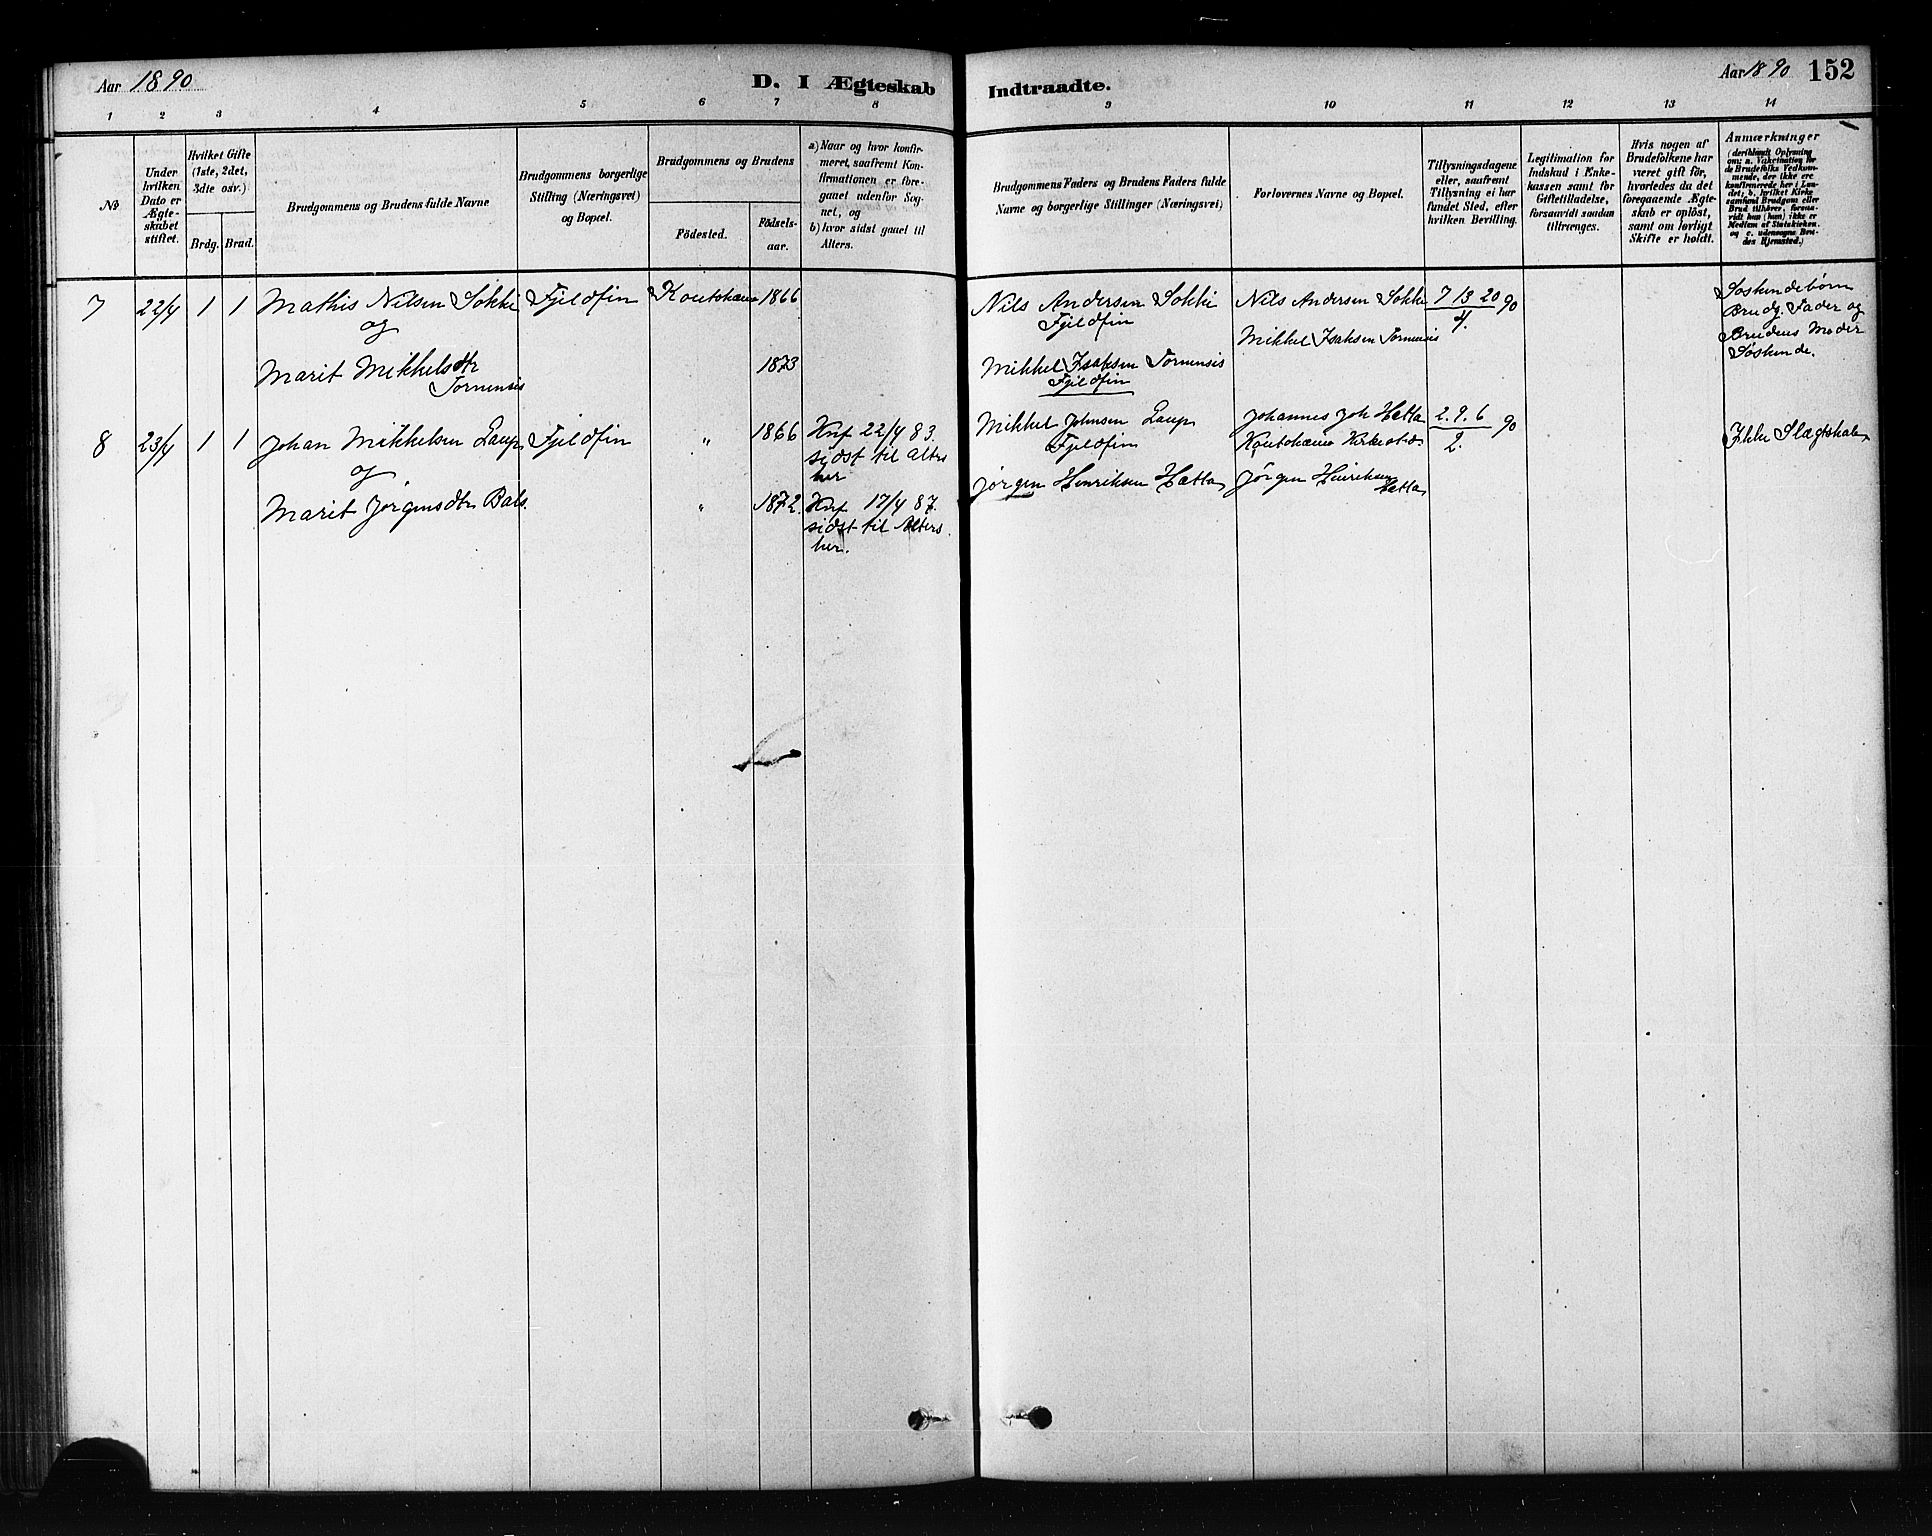 Aar 1890
D. I Ægteskab
Indtraadte.
Aar 1890
152
1 2 3 4 5 6 7 8 9 10 11 12 13 14
No
Under hvilken Dato er Ægteskabet stiftet.
Hvilket Gifte (1ste, 2det, 3die osv.)
Brdg. Brud.
Brudgommens og Brudens fulde Navne
Brudgommens borgerlige Stilling (Næringsvei) og Bopæl.
Brudgommens og Brudens
Fødested.
Fødselsaar.
a) Naar og hvor konfirmeret, saafremt Konfirmationen er foregaaet udenfor Sognet, og
b) hvor sidst gaaet til Alters.
Brudgommens Faders og Brudens Faders fulde Navne og borgerlige Stillinger (Næringsvei)
Forlovernes Navne og Bopæl.
Tillysningsdagene eller, saafremt Tillysning ei har fundet Sted, efter hvilken Bevilling.
Legitimation for Indskud i Enkekassen samt for Giftetilladelse, forsaavidt saadan tiltrænges.
Hvis nogen af Brudefolkene har været gift før, hvorledes da det foregaaende Ægteskab er opløst, samt om lovligt Skifte er holdt.
Anmærkninger
(deriblandt Oplysning om: a. Vakcination for de Brudefolks Vedkommende, der ikke ere konfirmerede her i Landet; b. hvilket Kirkesamfund Brudgom eller Brud tilhører, forsaavidt han (hun) ikke er Medlem af Statskirken, og c. udensogns Brudes Hjemsted.)
7 22/4 1 1 Mathis Nilsen Sokki Fjeldfin Koutokæino 1866
og
Marit Mikkelsdtr 1873
Tornensis
Nils Andersen Sokki
Fjeldfin
Mikkel Isaksen Tornensis
Fjeldfin
Nils Andersen Sokki
Mikkel Isaksen Tornensis
7 13 20 90
4.
Søskendebørn
Brudg. Fader og
Brudens Moder
Søskende.
8 23/4 1 1 Johan Mikkelsen Fjeldfin " 1866 Knf 22/4 83.
sidst til Alters
her
og
Marit Jørgensdtr Bals. " 1872. Knf 17/4 87.
sidst til Alters
her.
Mikkel Johnsen
Fjeldfin
Jørgen Henriksen Hætta
Johannes Joh Hætta
Koutokæino Kirkested
Jørgen Henriksen
Hætta
2. 9. 6 90
2.
Ikke Slægtskab